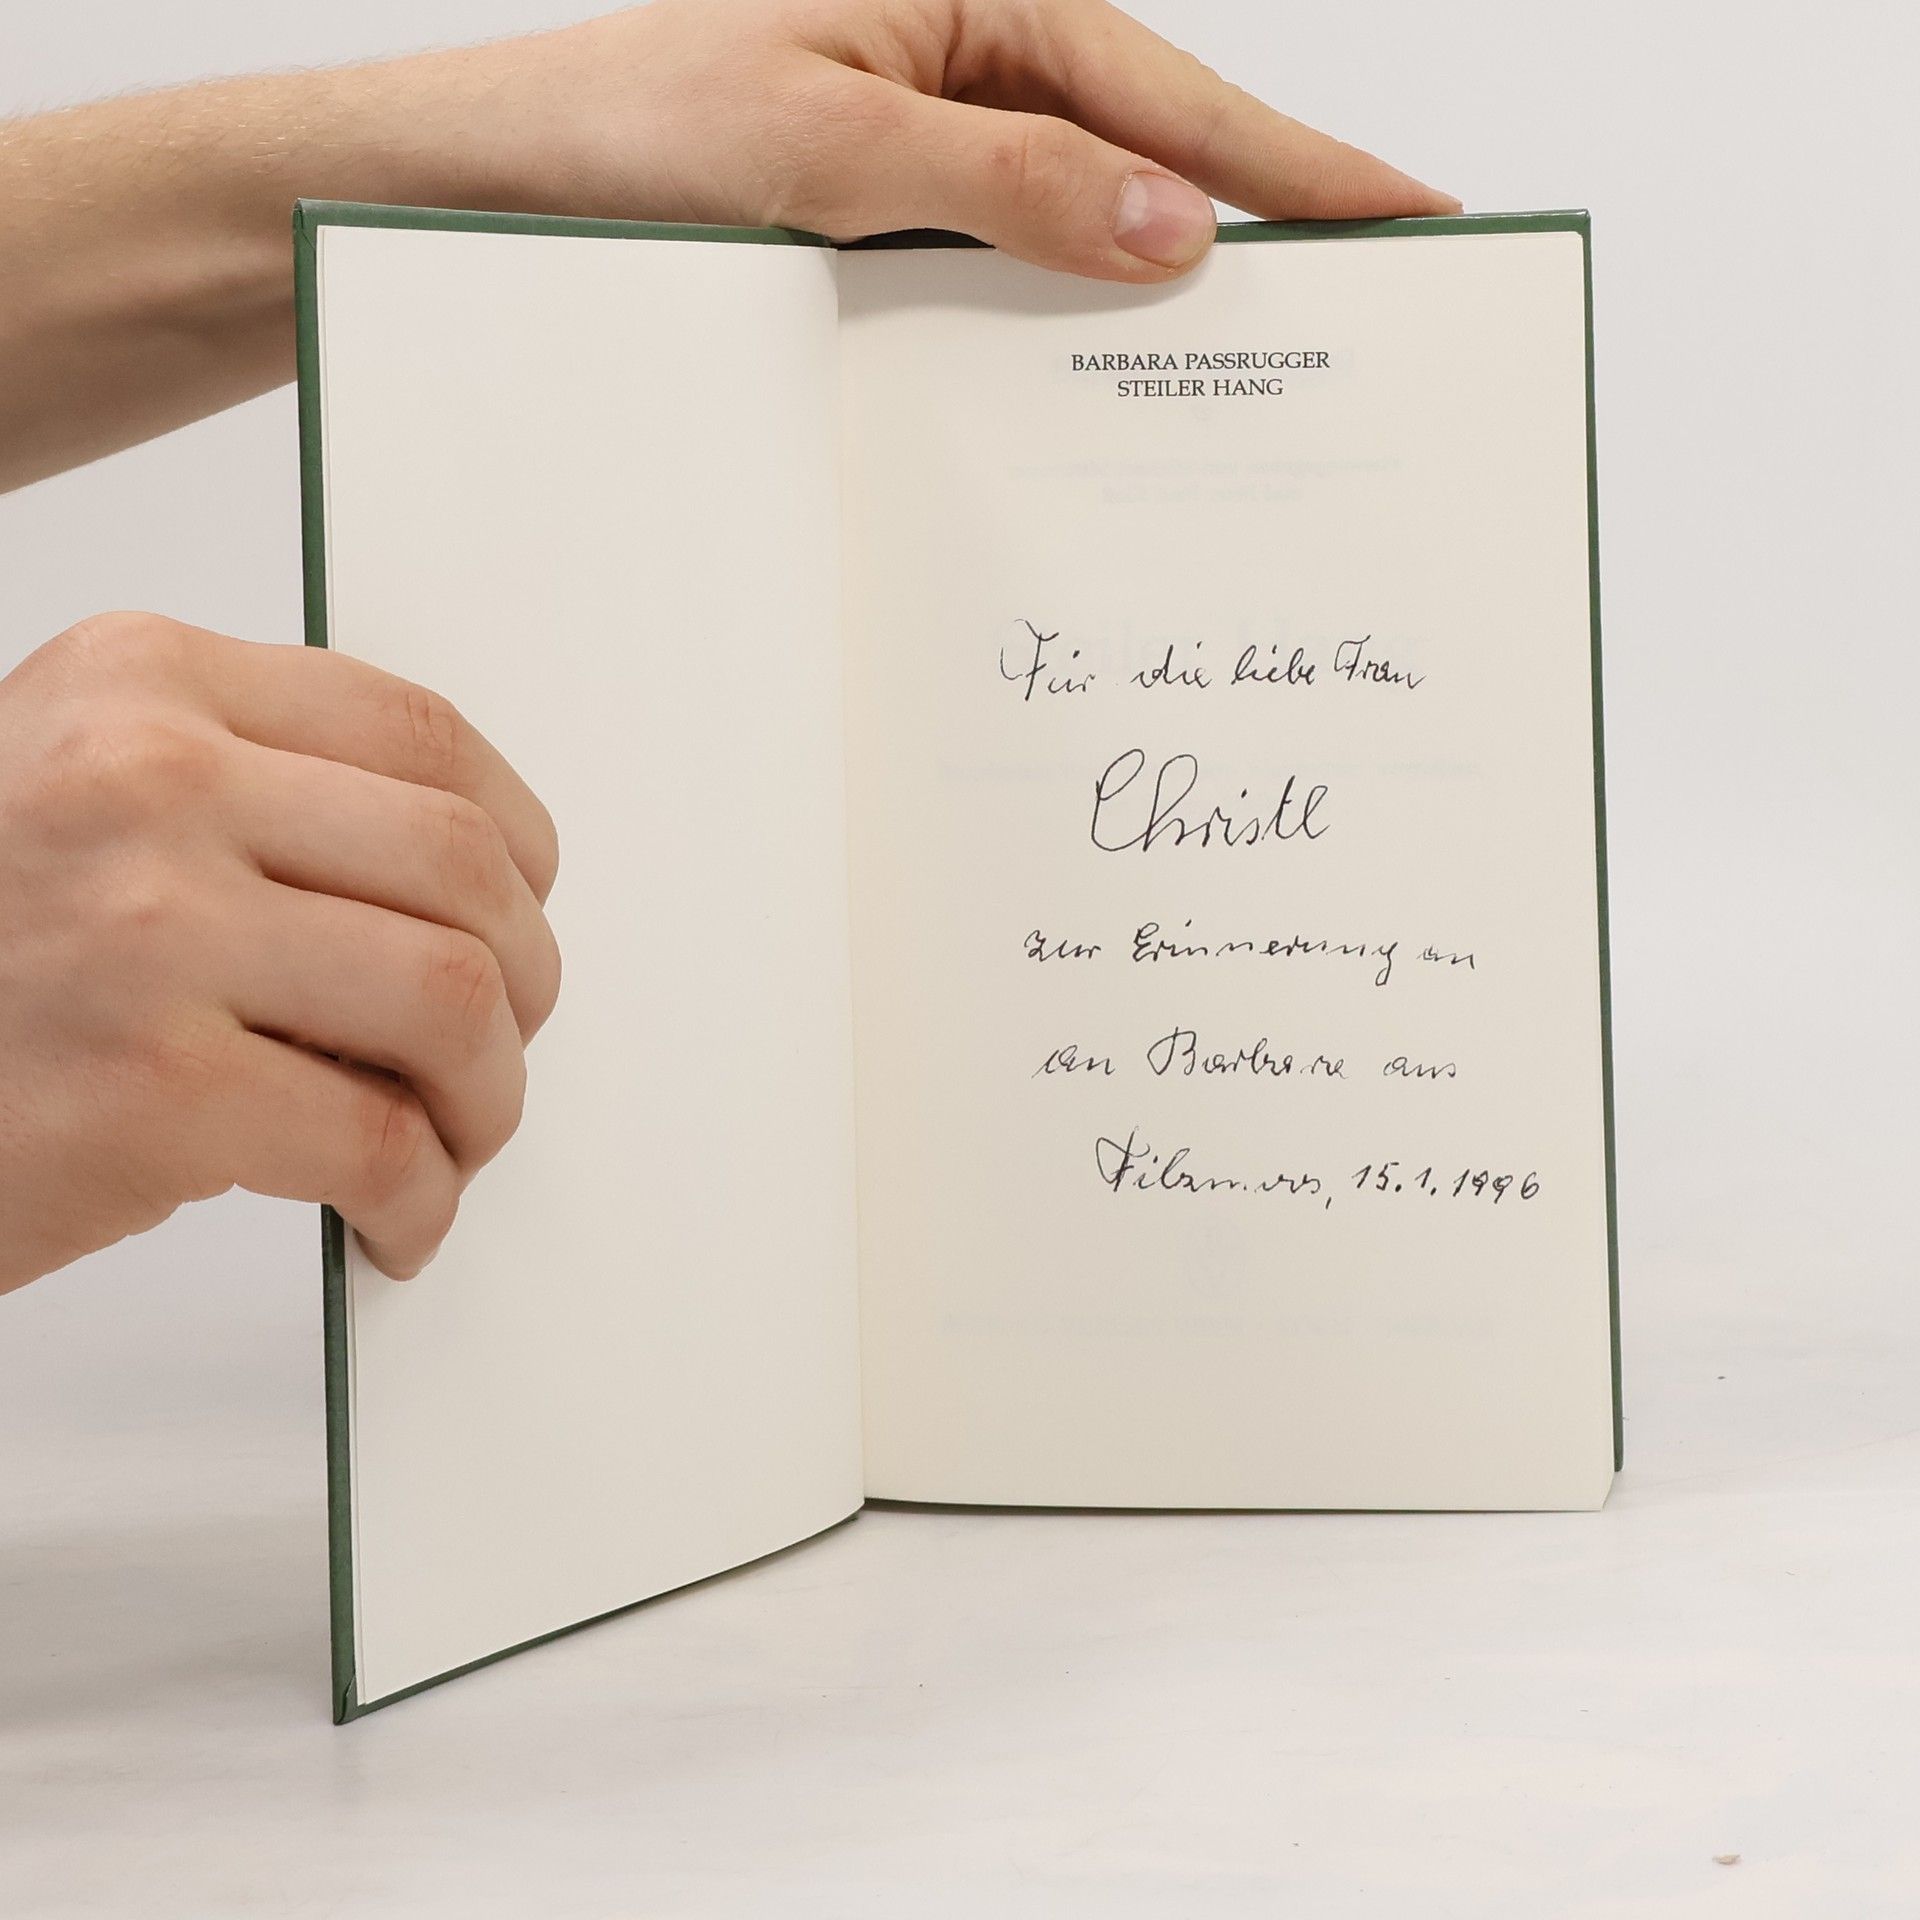 BARBARA PASSRUGGER
STEILER HANG
Für die liebe Frau
Christl
zur Erinnerung an
an Barbara aus
Filzmoos, 15.1.1996